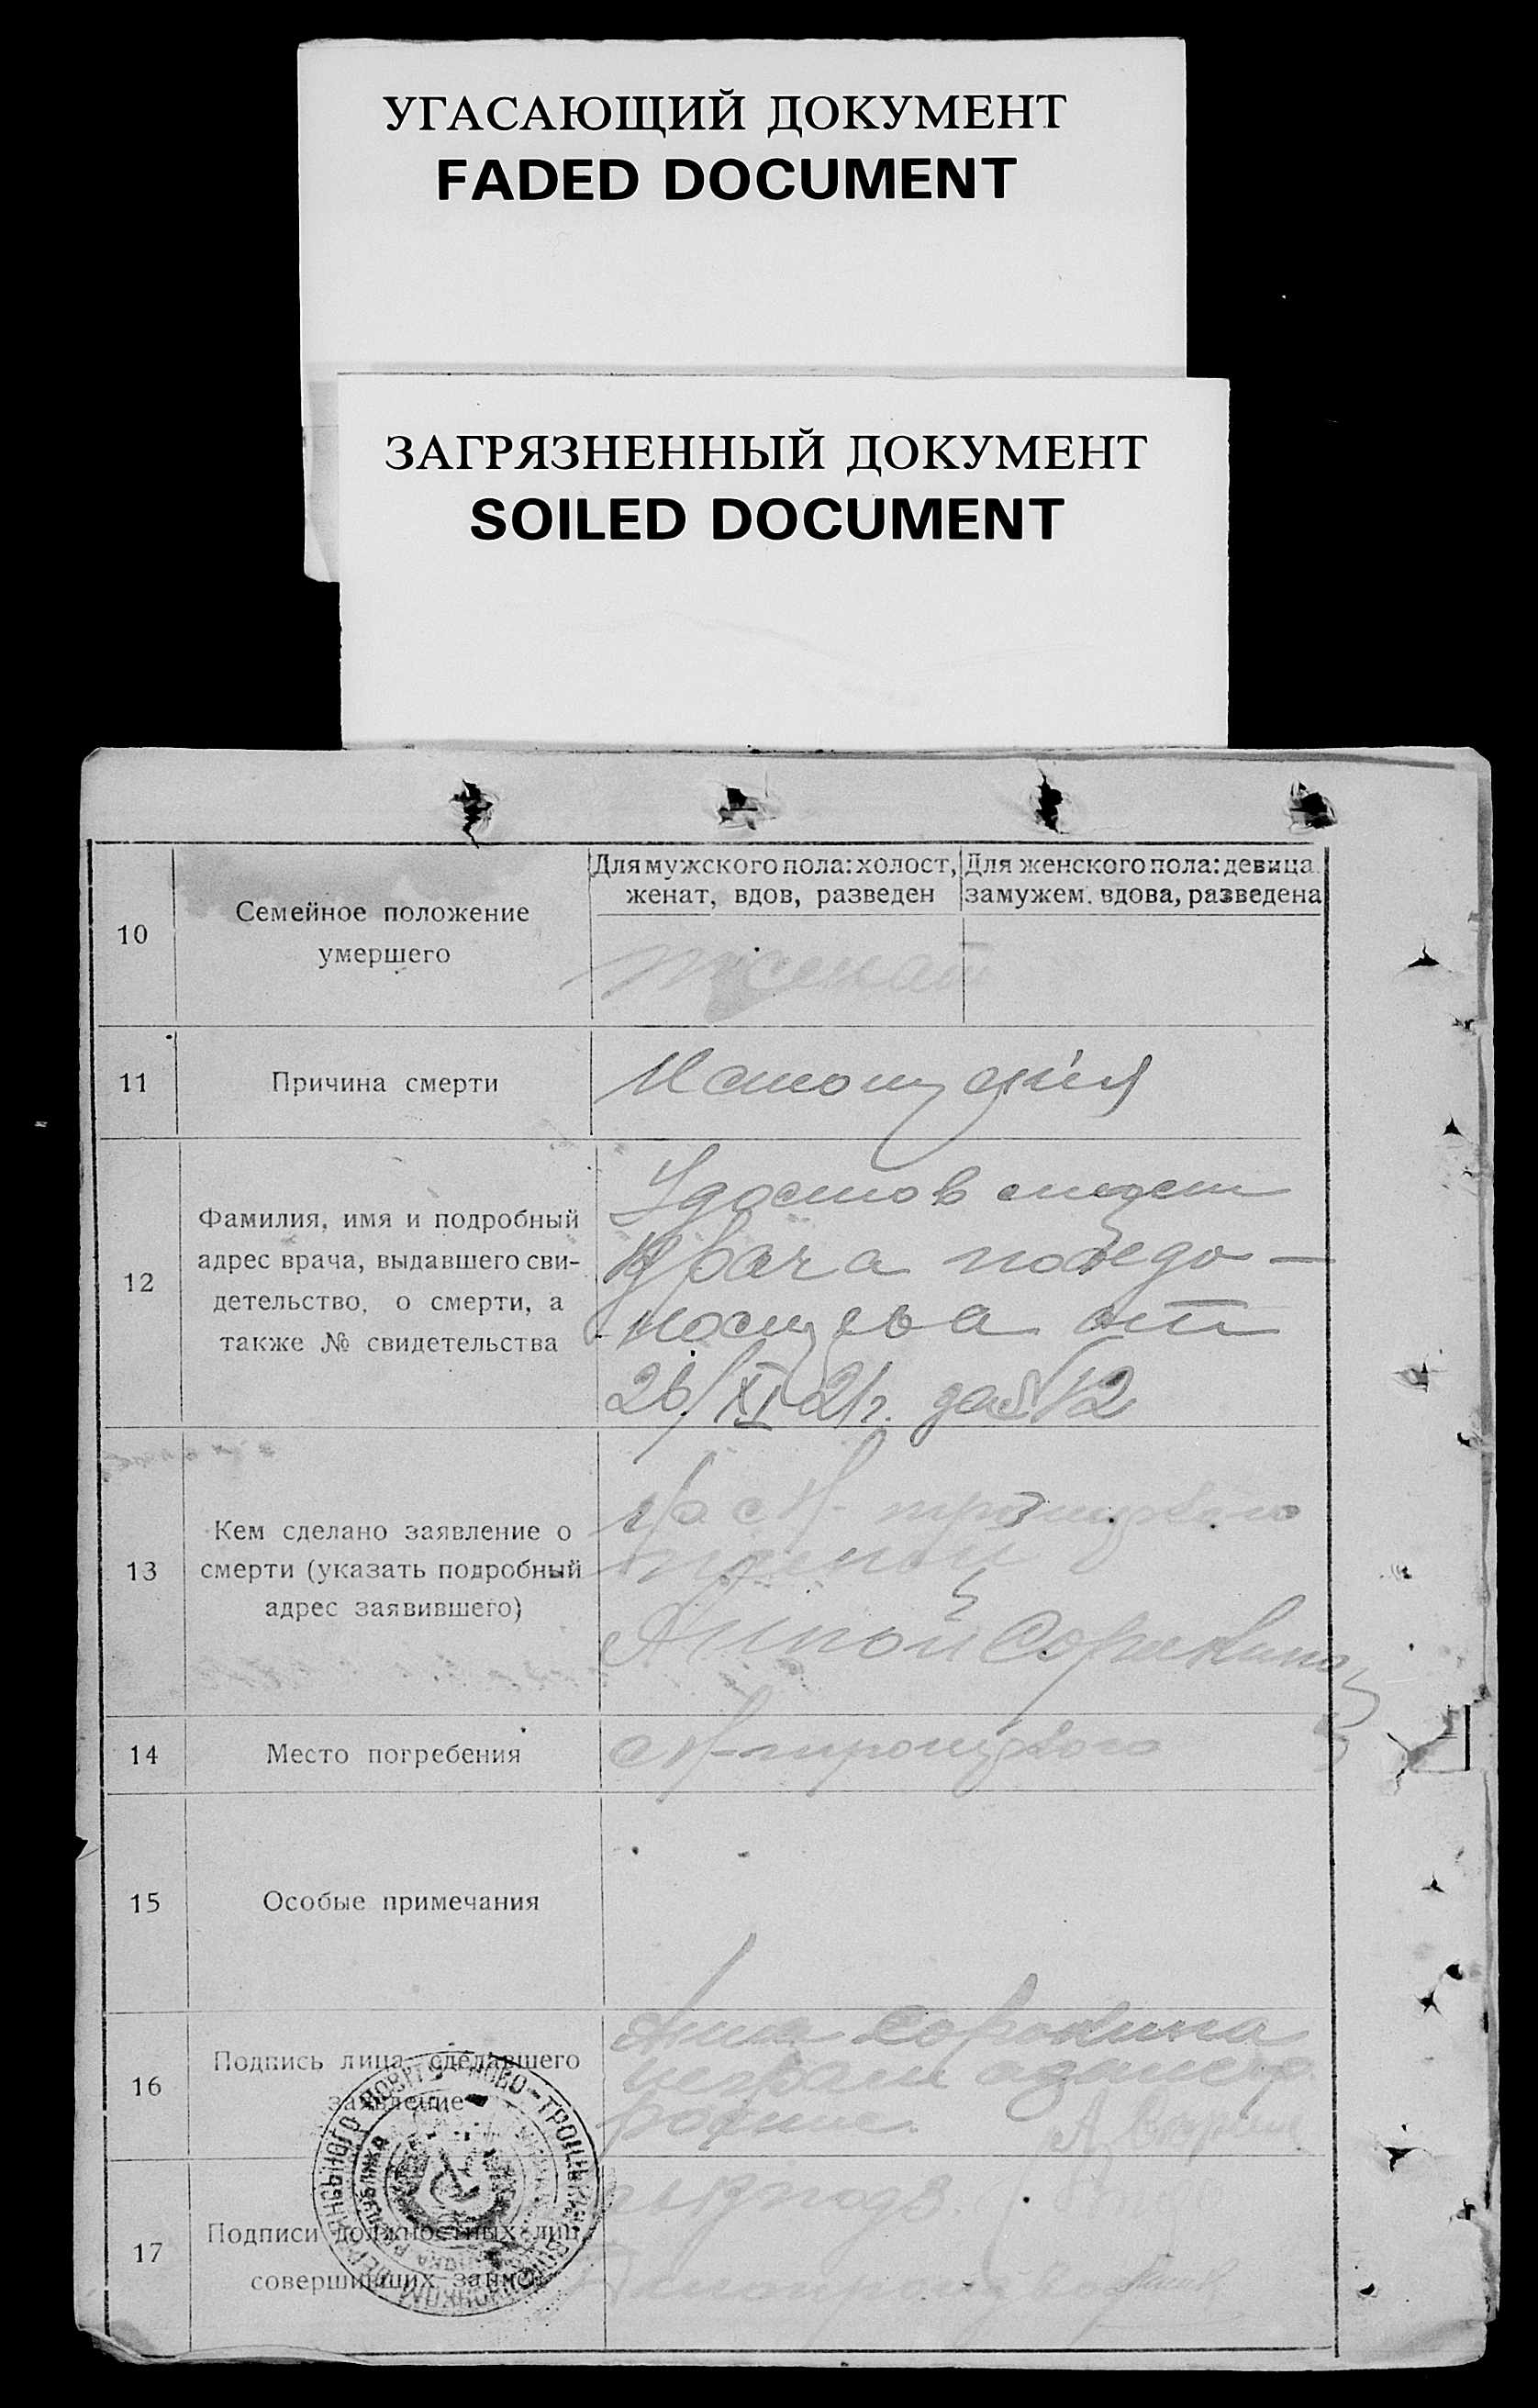 УГАСАЮЩИЙ ДОКУМЕНТ
FADED DOCUMENT
ЗАГРЯЗНЕННЫЙ ДОКУМЕНТ
SOILED DOCUMENT
10
Семейное положение
умершего
Для мужского пола: холост,
женат, вдов, разведен
Для женского пола: девица
замужем, вдова, разведена
женат
11
Причина смерти
12
Фамилия, имя и подробный
адрес врача, выдавшего сви-
детельство, о смерти, а
также № свидетельства
Врача победо-
носцева от
26/XI 21г. за №12
13
Кем сделано заявление о
смерти (указать подробный
адрес заявившего)
гр. с. Н-троицкого
Анной Сорокиной
14
Место погребения
с. Н-троицкого
15
Особые примечания
16
Подпись лица, сделавшего
заявление
Анна Сорокина
17
Подписи должностных лиц,
совершивших запись